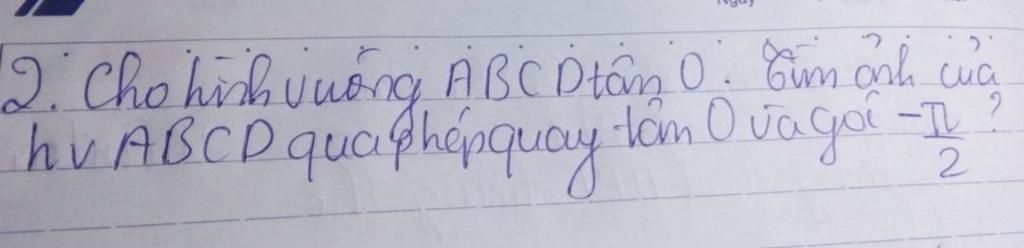 Ngày
2. Cho hình vuông ABCD tâm O. Tìm ảnh của
hv ABCD qua phép quay tâm O và gói -π/2?